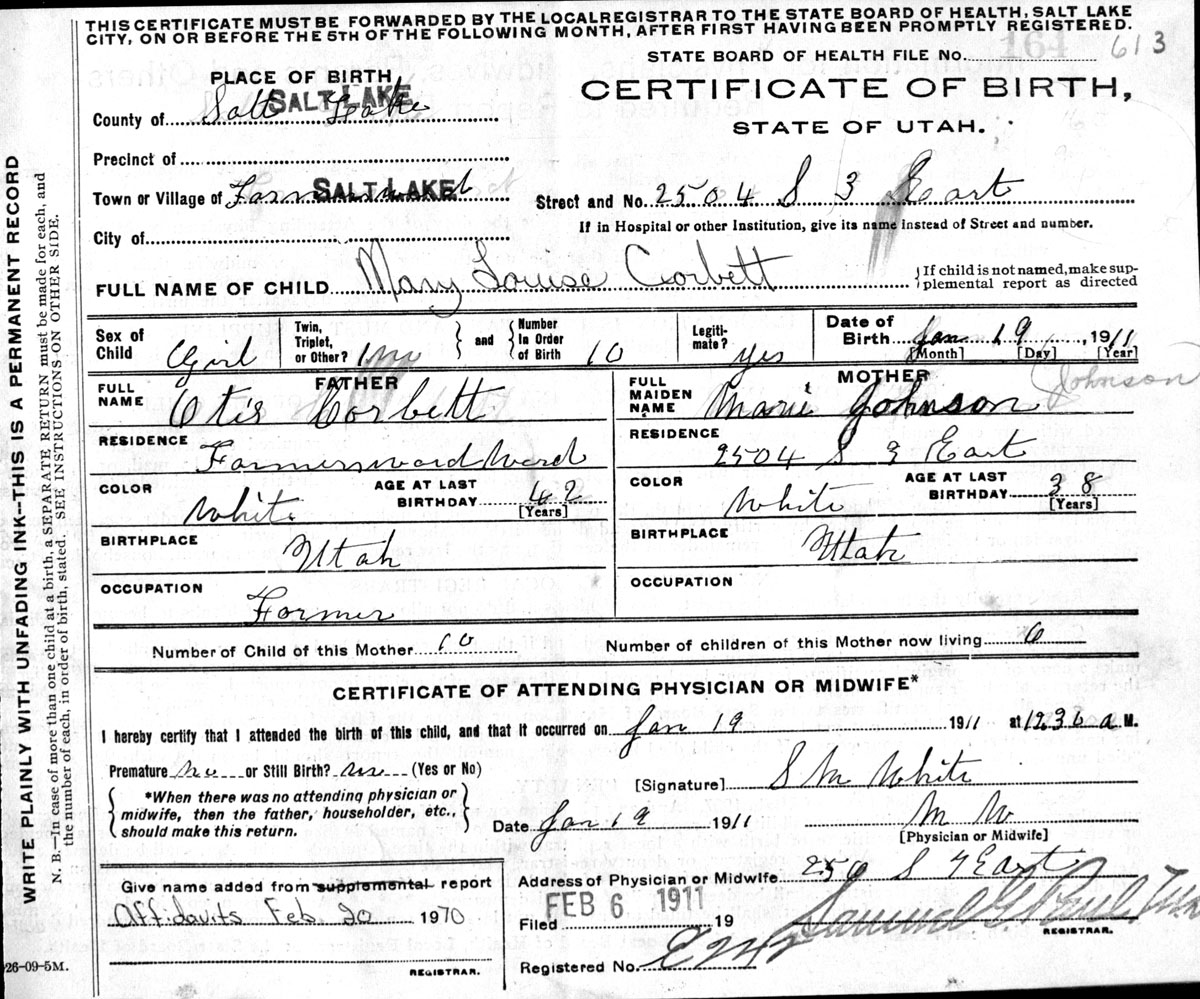 THIS CERTIFICATE MUST BE FORWARDED BY THE LOCAL REGISTRAR TO THE STATE BOARD OF HEALTH, SALT LAKE
CITY, ON OR BEFORE THE 5TH OF THE FOLLOWING MONTH, AFTER FIRST HAVING BEEN PROMPTLY REGISTERED.
STATE BOARD OF HEALTH FILE No. 164 613
PLACE OF BIRTH
CERTIFICATE OF BIRTH,
STATE OF UTAH.
County of Salt Lake SALT LAKE
Precinct of
Town or Village of SALT LAKE
Street and No. 2504 S 3 East
If in Hospital or other Institution, give its name instead of Street and number.
City of
FULL NAME OF CHILD Mary Louise Corbett
If child is not named, make supplemental report as directed
Sex of Child Girl
Twin, Triplet, or Other?
and Number In Order of Birth 10
Legitimate? yes
Date of Birth Jan 19, 1911
[Month] [Day] [Year]
FATHER
FULL NAME Otis Corbett
RESIDENCE Farmersward Ward
COLOR White
AGE AT LAST BIRTHDAY 42
[Years]
BIRTHPLACE Utah
OCCUPATION Farmer
MOTHER
FULL MAIDEN NAME Marie Johnson Johnson
RESIDENCE 2504 S East
COLOR White
AGE AT LAST BIRTHDAY 38
[Years]
BIRTHPLACE Utah
OCCUPATION
Number of Child of this Mother 10
Number of children of this Mother now living 6
CERTIFICATE OF ATTENDING PHYSICIAN OR MIDWIFE*
I hereby certify that I attended the birth of this child, and that it occurred on Jan 19 1911 at 1230 a M.
Premature no or Still Birth? no (Yes or No)
*When there was no attending physician or
midwife, then the father, householder, etc.,
should make this return.
[Signature] S M White
Date Jan 19 1911 M W
[Physician or Midwife]
Address of Physician or Midwife 256 S East
Give name added from supplemental report
Affidavits Feb 20 1970
REGISTRAR.
Filed FEB 6 1911 19
Samuel G. Paul
REGISTRAR.
Registered No.
26-09-5M.
WRITE PLAINLY WITH UNFADING INK--THIS IS A PERMANENT RECORD
N. B.—In case of more than one child at a birth, a SEPARATE RETURN must be made for each, and
the number of each, in order of birth, stated. SEE INSTRUCTIONS ON OTHER SIDE.